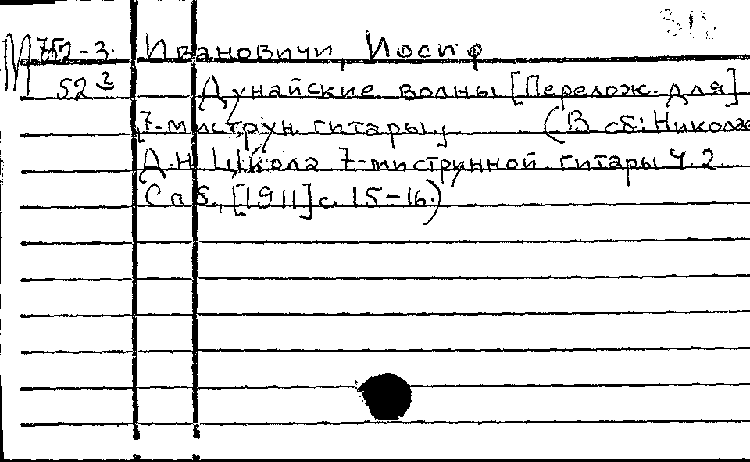 М 752-3. Ивановичи, Иосиф
52 2 Дунайские волны [Перелож. для]
7-миструн. гитары, (В сб: Николаж
Д.Н. Школа 7-миструнной гитары Ч.2.
Спб., [1911] с. 15-16.)